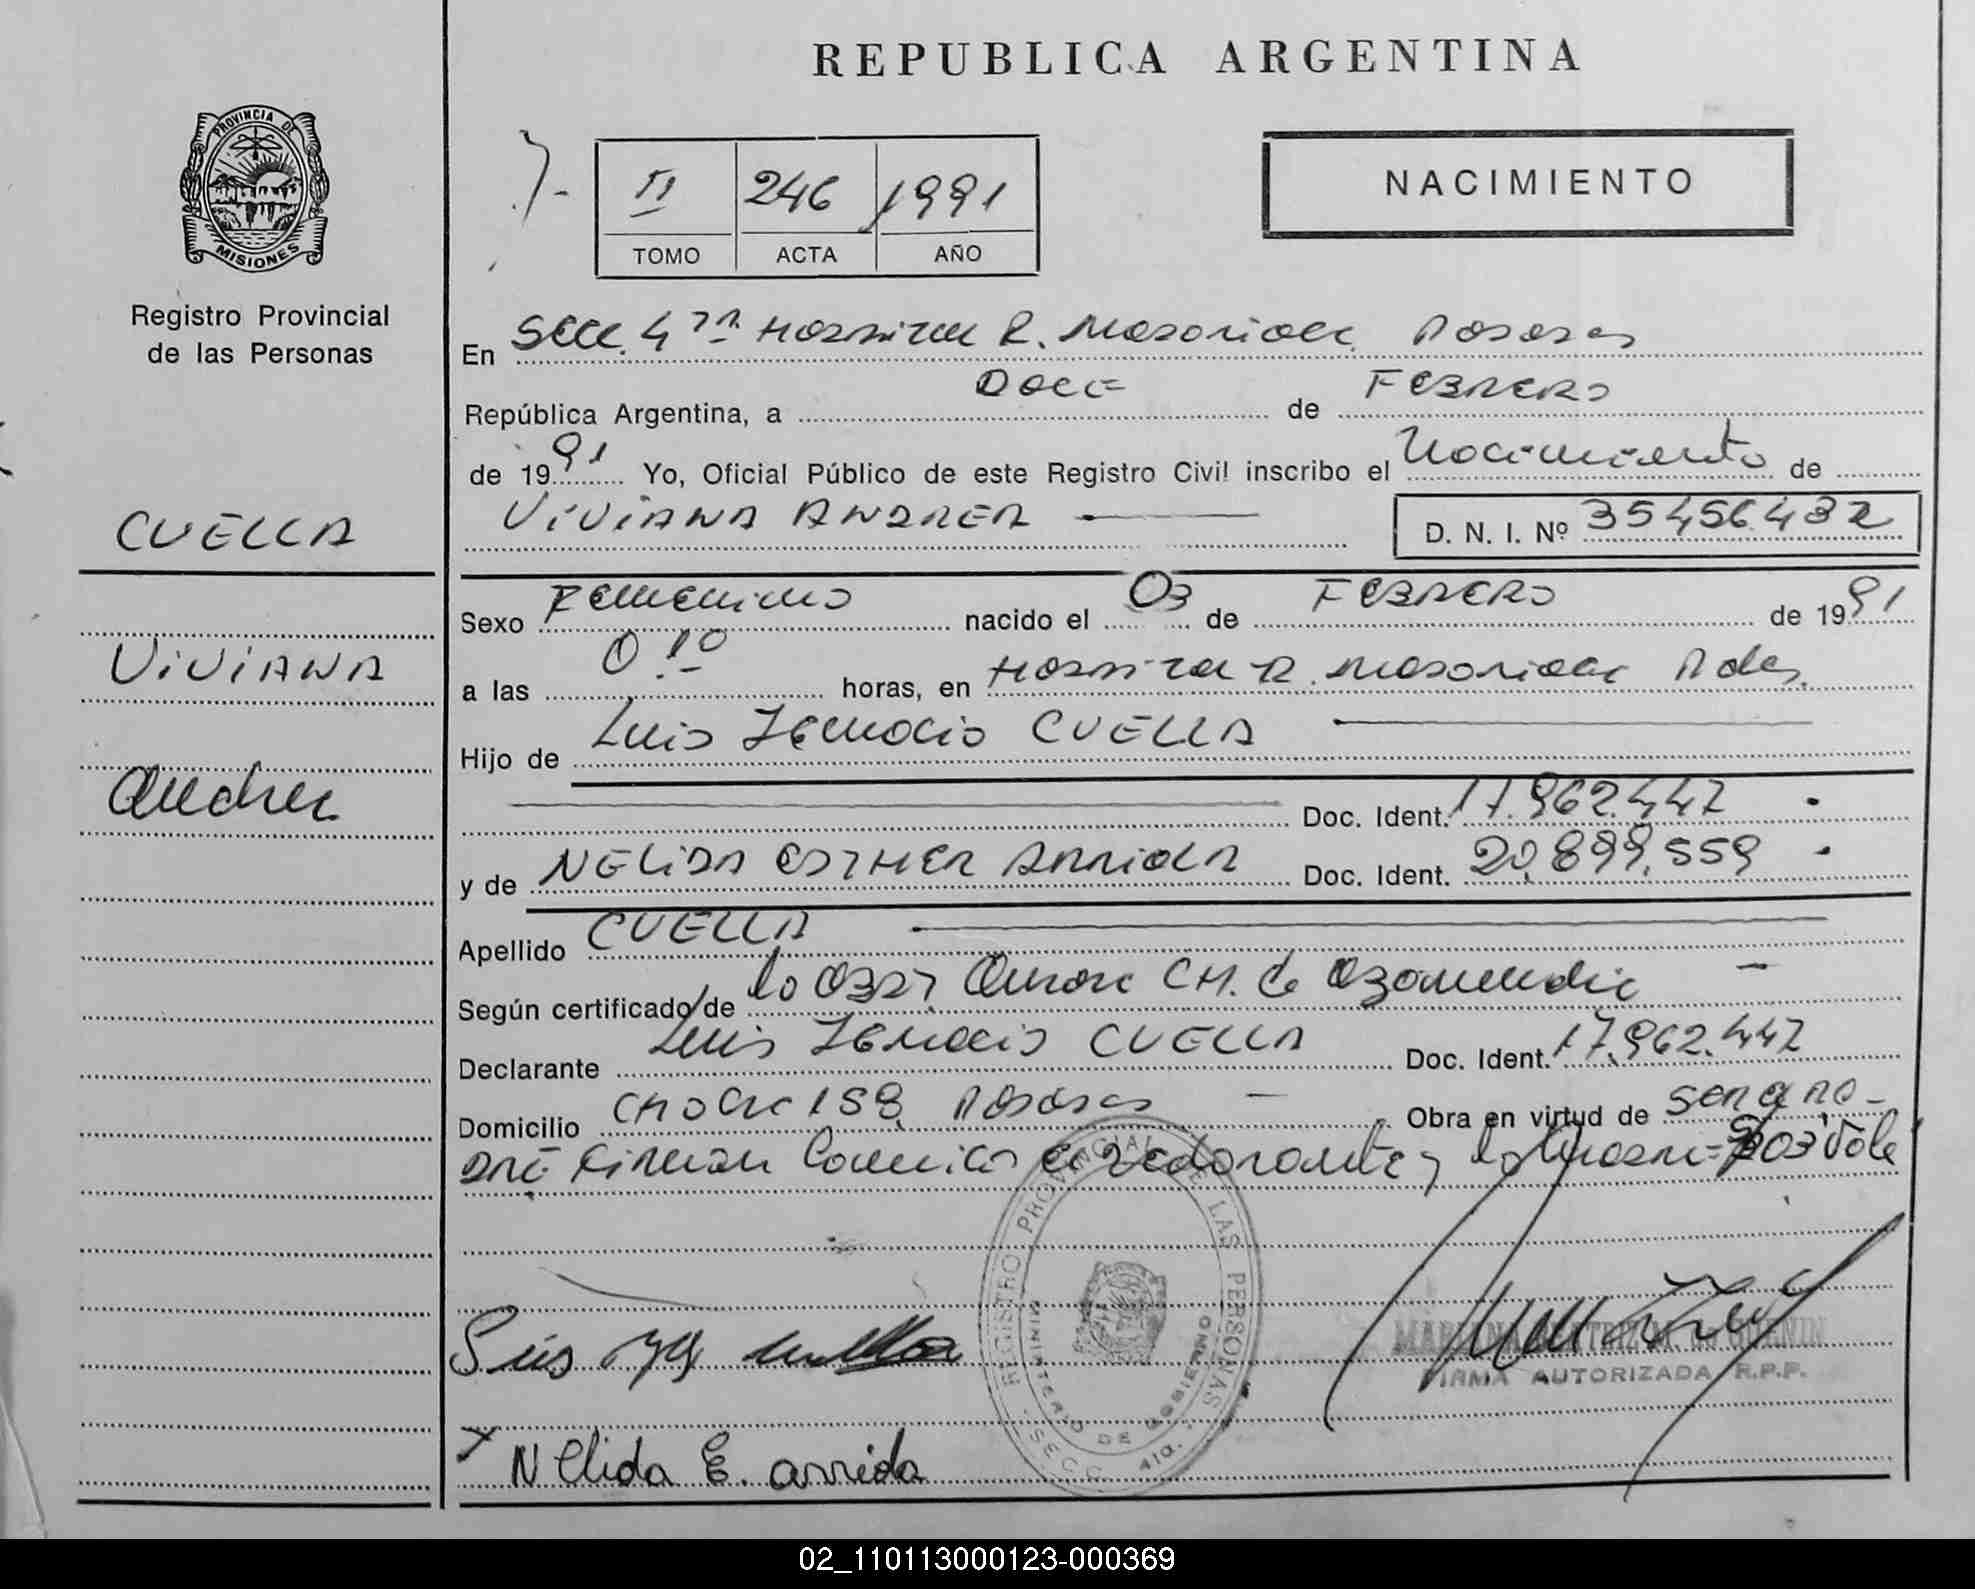 REPUBLICA ARGENTINA
PROVINCIA DE MISIONES
II 246 1991
TOMO ACTA AÑO
NACIMIENTO
Registro Provincial
de las Personas
CUELLA
VIVIANA
Andrea
En Secc. 4ta Hospital R. Madariaga Posadas
República Argentina, a Doce de FEBRERO
de 1991 Yo, Oficial Público de este Registro Civil inscribo el Nacimiento de
VIVIANA ANDREA D. N. I. Nº 35456432
Sexo Femenino nacido el 03 de FEBRERO de 1991
a las 0.10 horas, en Hospital R. Madariaga Pdas.
Hijo de Luis Ignacio CUELLA
Doc. Ident. 17.962.447
y de NELIDA ESTHER ARRIOLA Doc. Ident. 20.899.559
Apellido CUELLA
Según certificado de la Obst. Aurora CH. de
Declarante Luis Ignacio CUELLA Doc. Ident. 17.962.447
Domicilio 159 Posadas Obra en virtud de ser
Firman Conmigo el declarante y la
Luis cuella
MARIANA BEATRIZ
FIRMA AUTORIZADA R.P.P.
REGISTRO PROVINCIAL DE LAS PERSONAS
MINISTERIO DE GOBIERNO
SECC. 4ta.
Nelida E. arriola
02_110113000123-000369